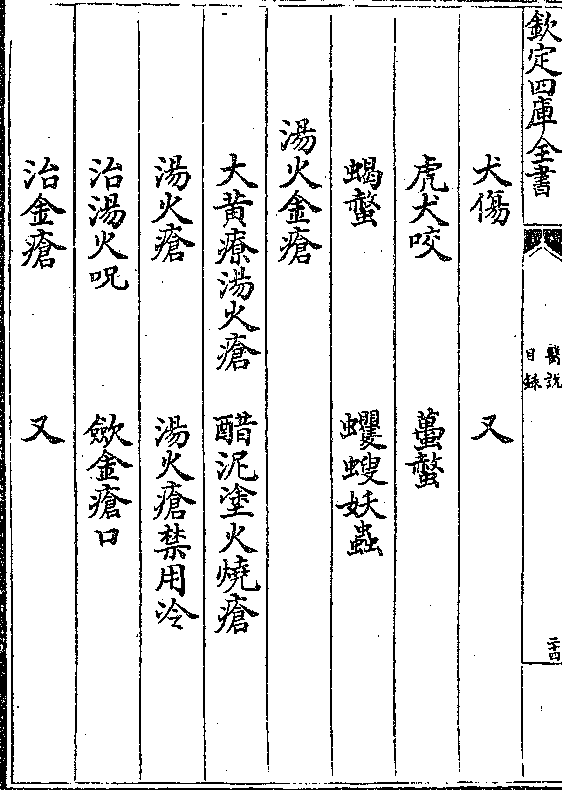 欽定四庫全書
醫說
目錄
二十四
犬傷 又
虎犬咬 蠆螫
蝎螫 蠼螋妖蟲
湯火金瘡
大黄療湯火瘡 醋泥塗火燒瘡
湯火瘡 湯火瘡禁用冷
治湯火呪 歛金瘡口
治金瘡 又